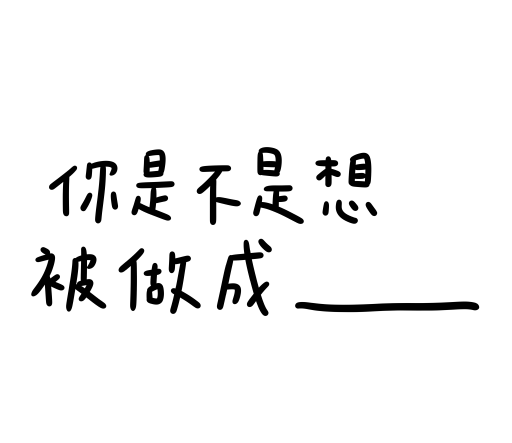 你是不是想
被做成______